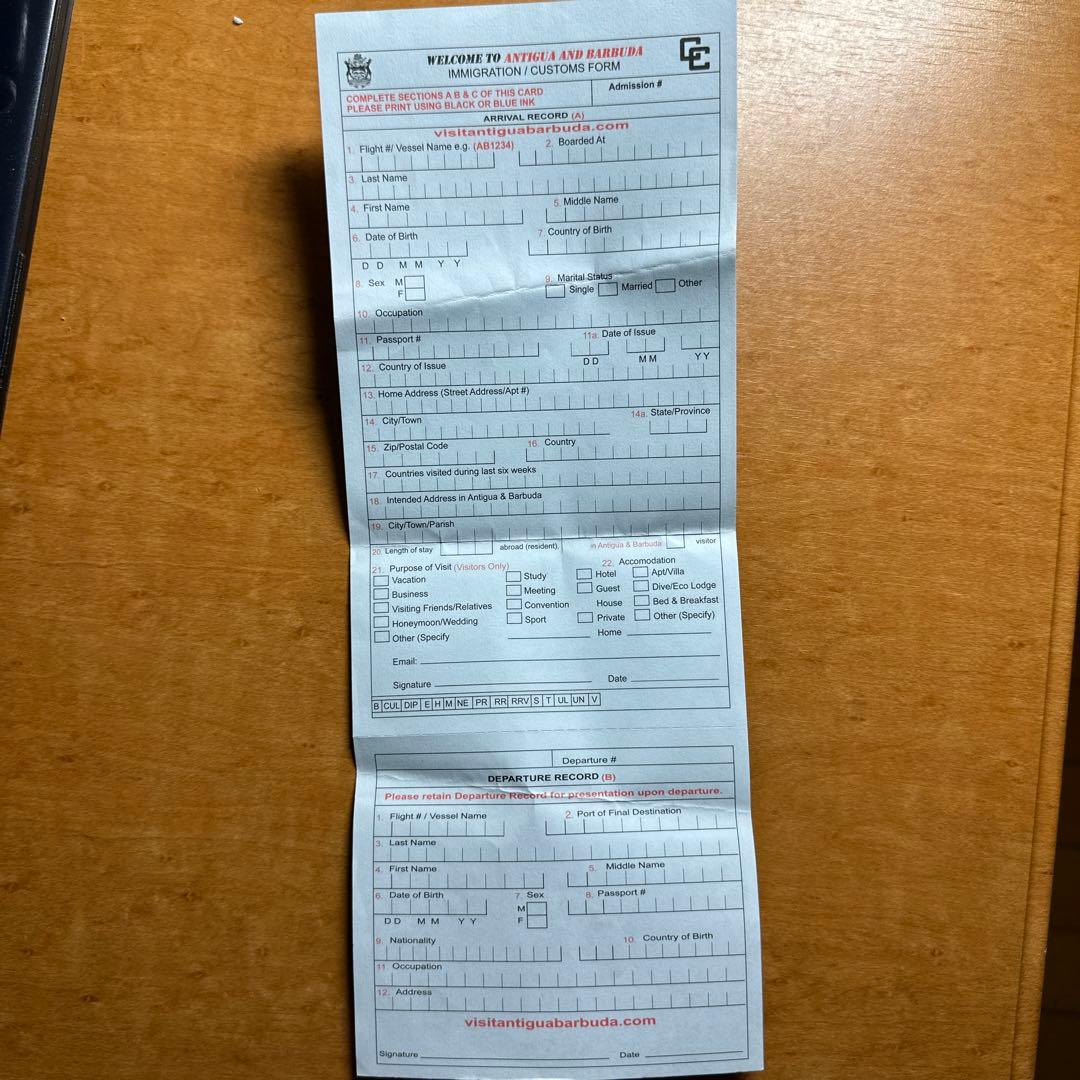 WELCOME TO ANTIGUA AND BARBUDA
IMMIGRATION / CUSTOMS FORM
CC
COMPLETE SECTIONS A B & C OF THIS CARD
PLEASE PRINT USING BLACK OR BLUE INK
Admission #
ARRIVAL RECORD (A)
visitantiguabarbuda.com
1. Flight #/ Vessel Name e.g. (AB1234) 2. Boarded At
3. Last Name
4. First Name 5. Middle Name
6. Date of Birth 7. Country of Birth
D D M M Y Y
8. Sex M F 9. Marital Status
Single Married Other
10. Occupation
11. Passport # 11a. Date of Issue
D D M M Y Y
12. Country of Issue
13. Home Address (Street Address/Apt #)
14. City/Town 14a. State/Province
15. Zip/Postal Code 16. Country
17. Countries visited during last six weeks
18. Intended Address in Antigua & Barbuda
19. City/Town/Parish
20. Length of stay abroad (resident), in Antigua & Barbuda visitor
21. Purpose of Visit (Visitors Only) 22. Accomodation
Vacation Study Hotel Apt/Villa
Business Meeting Guest Dive/Eco Lodge
Visiting Friends/Relatives Convention House Bed & Breakfast
Honeymoon/Wedding Sport Private Other (Specify)
Other (Specify Home
Email:
Signature Date
B CUL DIP E H M NE PR RR RRV S T UL UN V
Departure #
DEPARTURE RECORD (B)
Please retain Departure Record for presentation upon departure.
1. Flight # / Vessel Name 2. Port of Final Destination
3. Last Name
4. First Name 5. Middle Name
6. Date of Birth 7. Sex 8. Passport #
M
D D M M Y Y F
9. Nationality 10. Country of Birth
11. Occupation
12. Address
visitantiguabarbuda.com
Signature Date